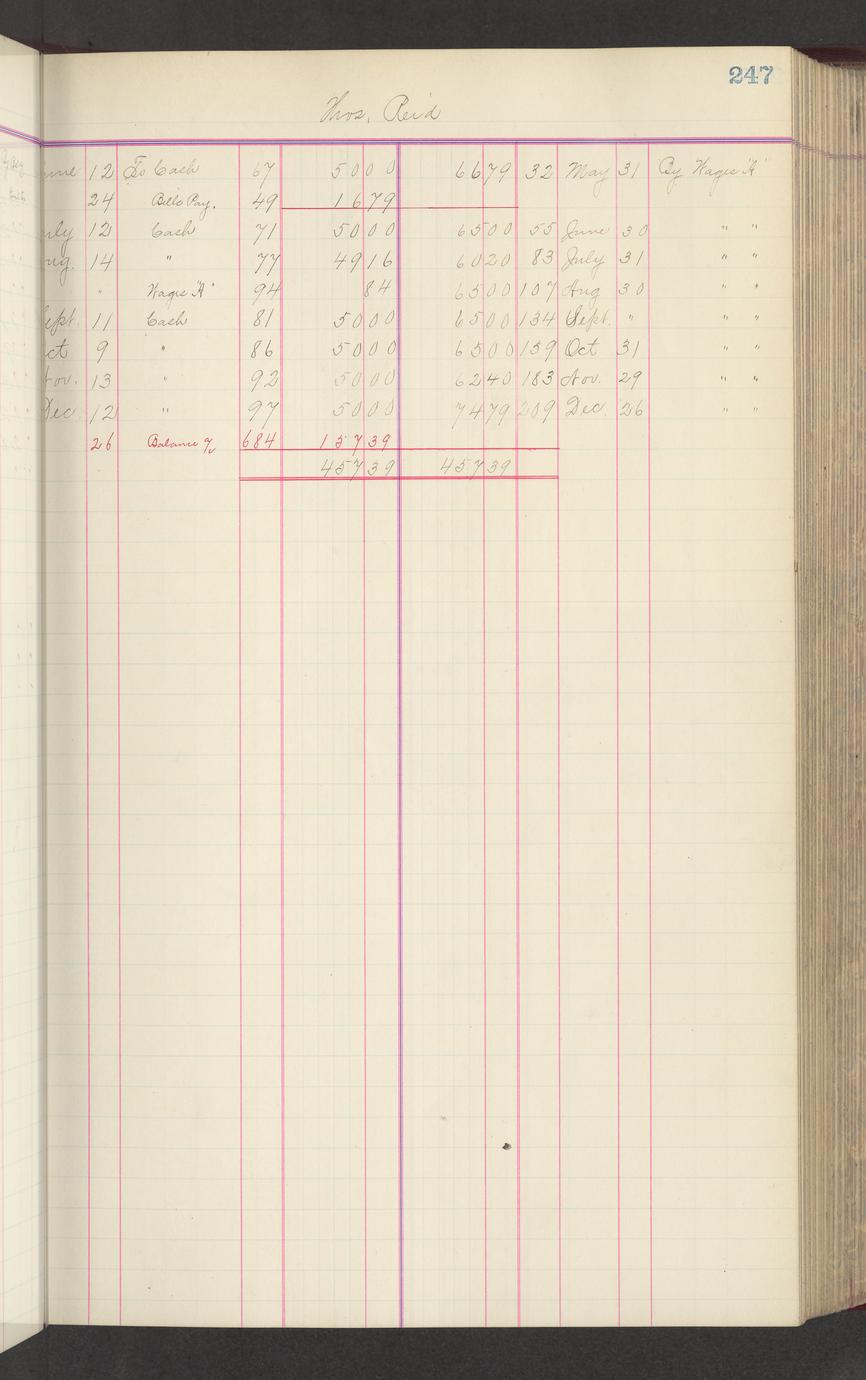 247
Thos. Reid
June 12 To Cash 67 50 00 66 79 32 May 31 By Wages "A"
24 Bills Pay. 49 16 79
July 12 Cash 71 50 00 65 00 55 June 30 " "
Aug. 14 " 77 49 16 60 20 83 July 31 " "
" Wages "A" 94 84 65 00 107 Aug 30 " "
Sept. 11 Cash 81 50 00 65 00 134 Sept. " " "
Oct 9 " 86 50 00 65 00 159 Oct 31 " "
Nov. 13 " 92 50 00 62 40 183 Nov. 29 " "
Dec. 12 " 97 50 00 74 79 209 Dec. 26 " "
26 Balance 684 157 39
457 39 457 39